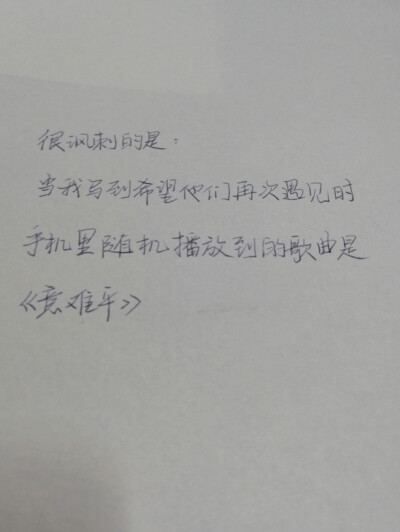 很讽刺的是：
当我写到希望他们再次遇见时
手机里随机播放到的歌曲是
《意难平》